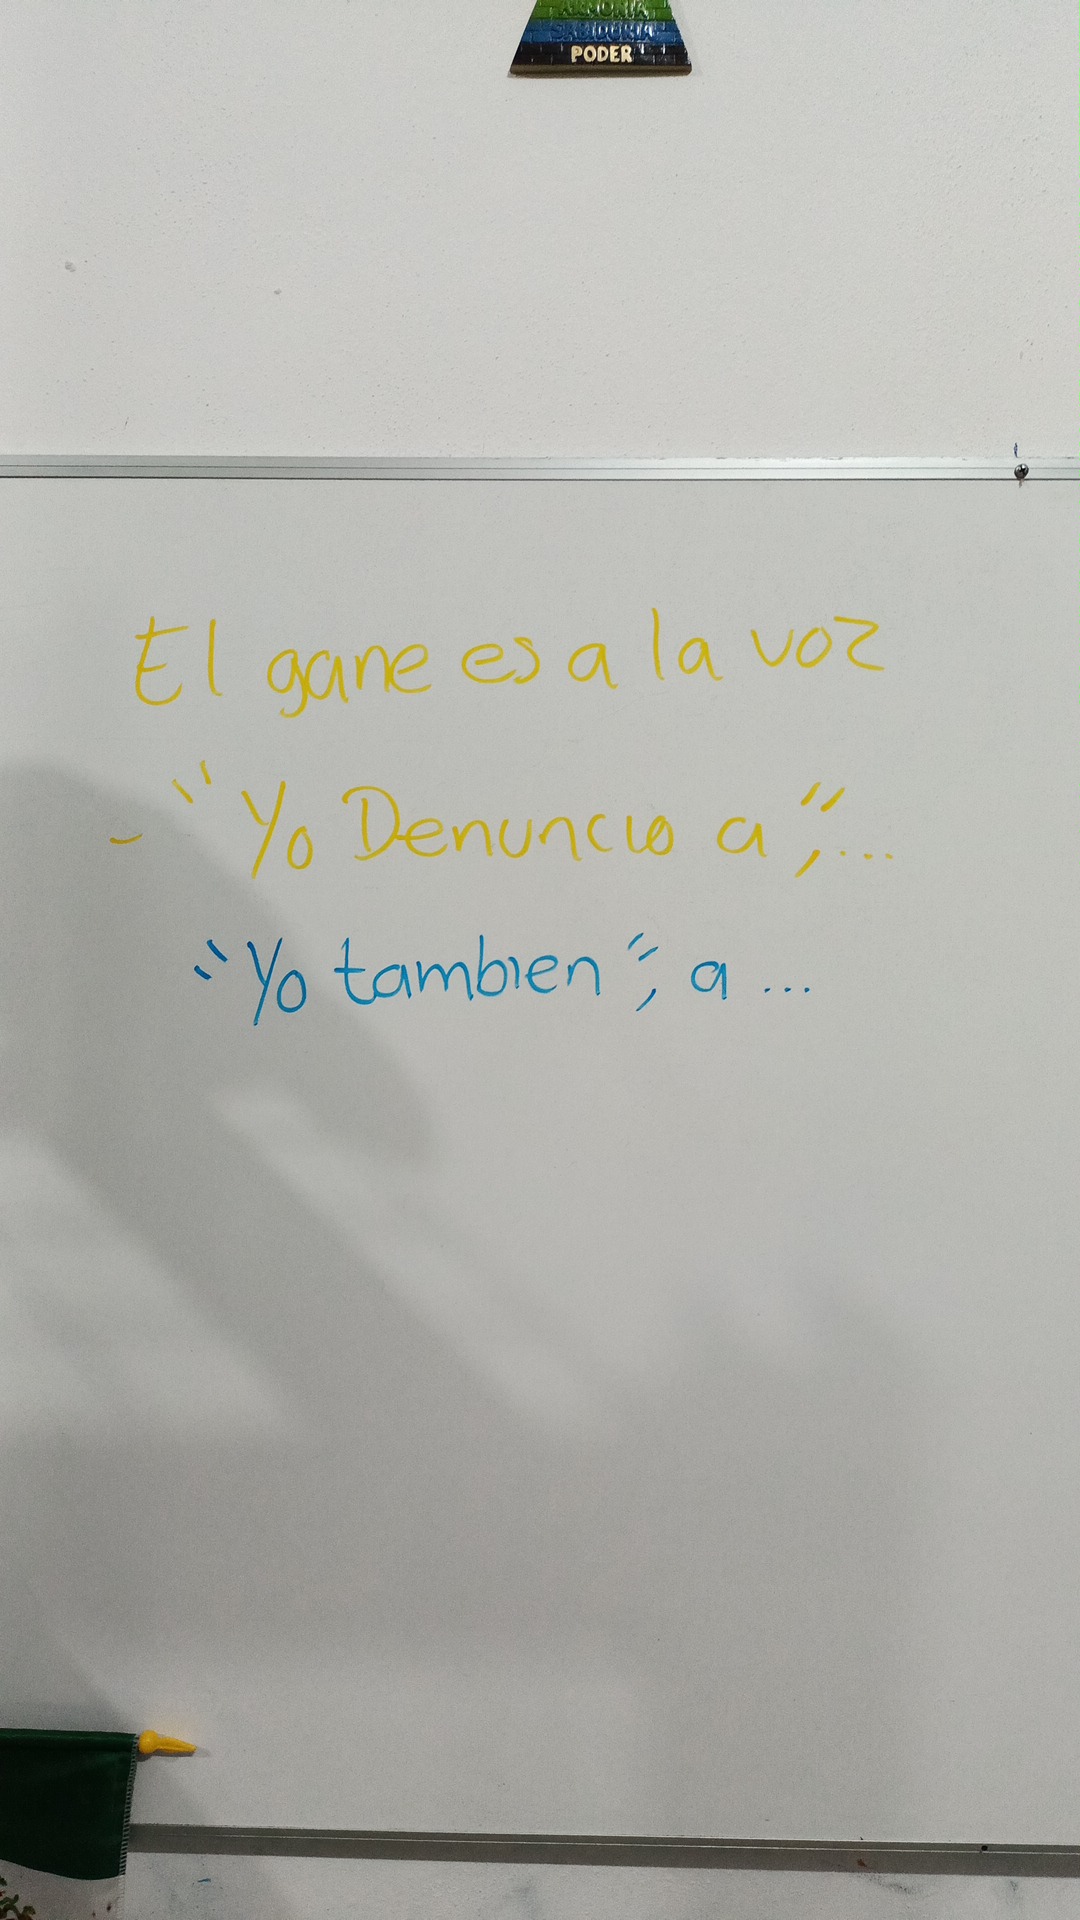 ARMONIA
SABIDURIA
PODER
El gane es a la voz
- "Yo Denuncio a",...
"Yo tambien", a ...